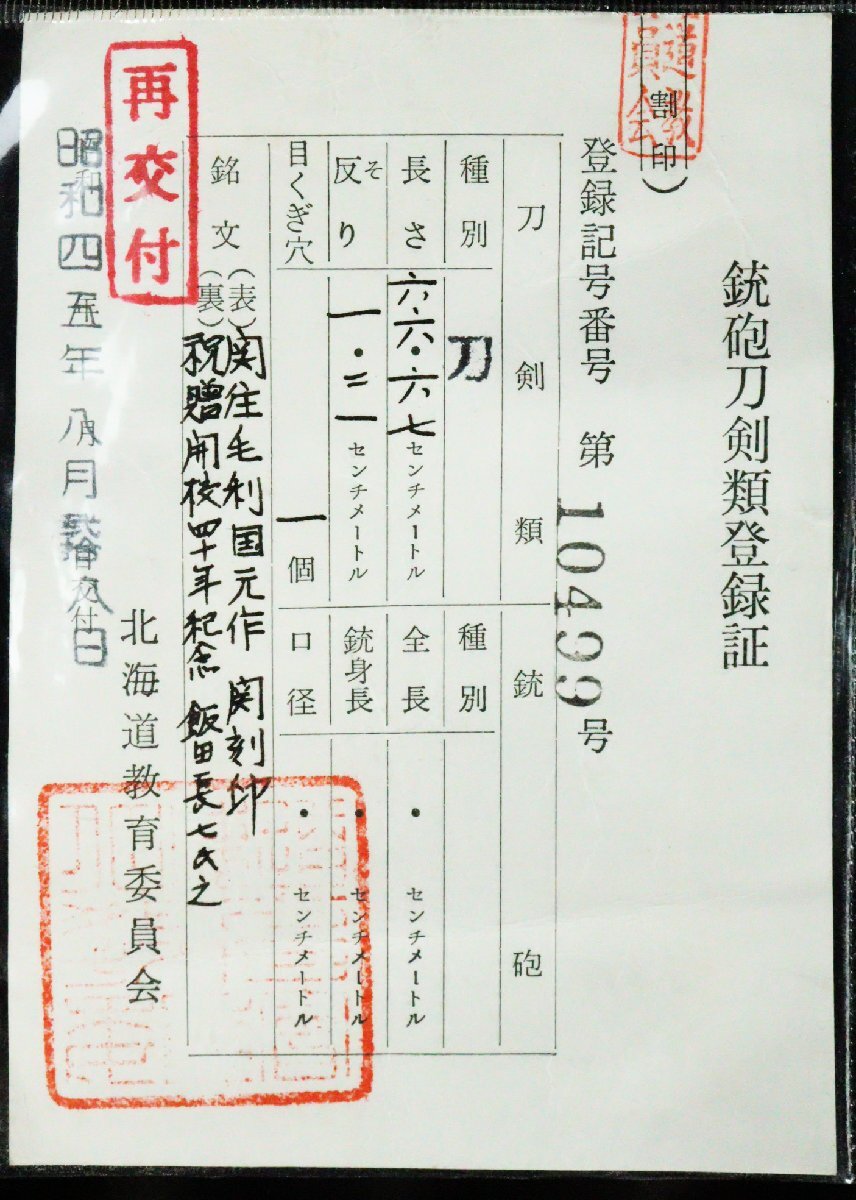 銃砲刀剣類登録証
(割印)
道教
員会
登録記号番号 第 10499 号
刀剣類
銃砲
種別 刀
種別
長さ 六六・六七 センチメートル
全長 ・ センチメートル
反り そ 一・二一 センチメートル
銃身長 ・ センチメートル
目くぎ穴 一個
口径 ・ センチメートル
銘文 (表) 関住毛利国元作 関刻印
(裏) 祝贈開校四十年紀念 飯田長七氏之
再交付
北海道教育委員会
昭和四五年八月 日交付